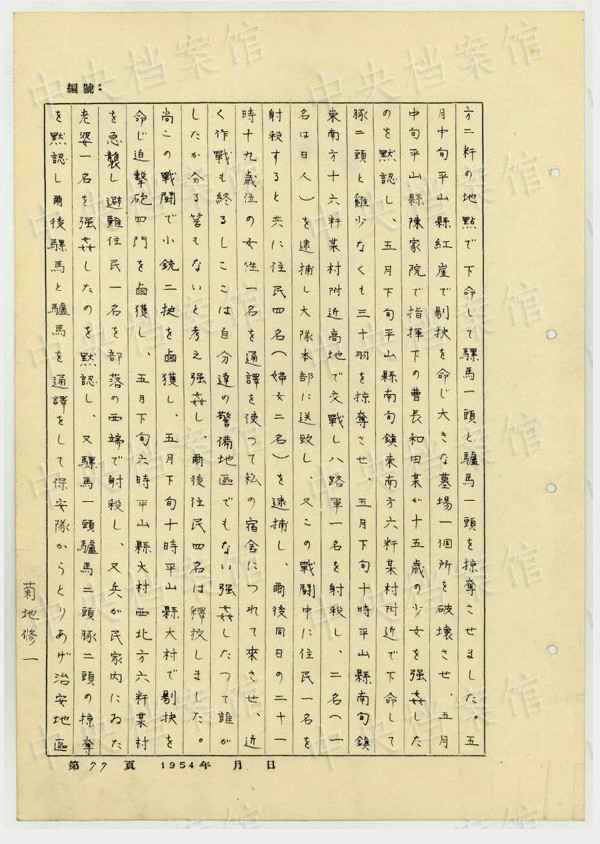 編號：
方二粁の地點で下命して騾馬一頭と驢馬一頭を掠奪させました。五
月中旬平山縣紅崖で剔抉を命じ大きな墓場一個所を破壊させ、五月
中旬平山縣陳家院で指揮下の曹長和田某が十五歳の少女を強姦した
のを黙認し、五月下旬平山縣南甸鎮東南方六粁某村附近で下命して
豚二頭と雞少なくも三十羽を掠奪させ、五月下旬十時平山縣南甸鎮
東南方十六粁某村附近高地で交戦し八路軍一名を射殺し、二名（一
名は日人）を逮捕し大隊本部に送致し、又この戰闘中に住民一名を
射殺すると共に住民四名（婦女二名）を逮捕し、爾後同日の二十一
時十九歳位の女性一名を通譯を使つて私の宿舎につれて來させ、近
く作戰も終るしここは自分達の警備地區でもない強姦したつて誰が
したか分る筈もないと考え強姦し、爾後住民四名は釋放しました。
尚この戰闘で小銃二挺を鹵獲し、五月下旬十時平山縣大村で剔抉を
命じ迫撃砲四門を鹵獲し、五月下旬六時平山縣大村西北方六粁某村
を急襲し避難住民一名を部落の西端で射殺し、又兵が民家内にゐた
老婆一名を強姦したのを黙認し、又騾馬一頭驢馬二頭豚二頭の掠奪
を黙認し爾後騾馬と驢馬を通譯をして保安隊からとりあげ治安地區
菊地修一
第77頁 1954年 月 日
中央档案馆